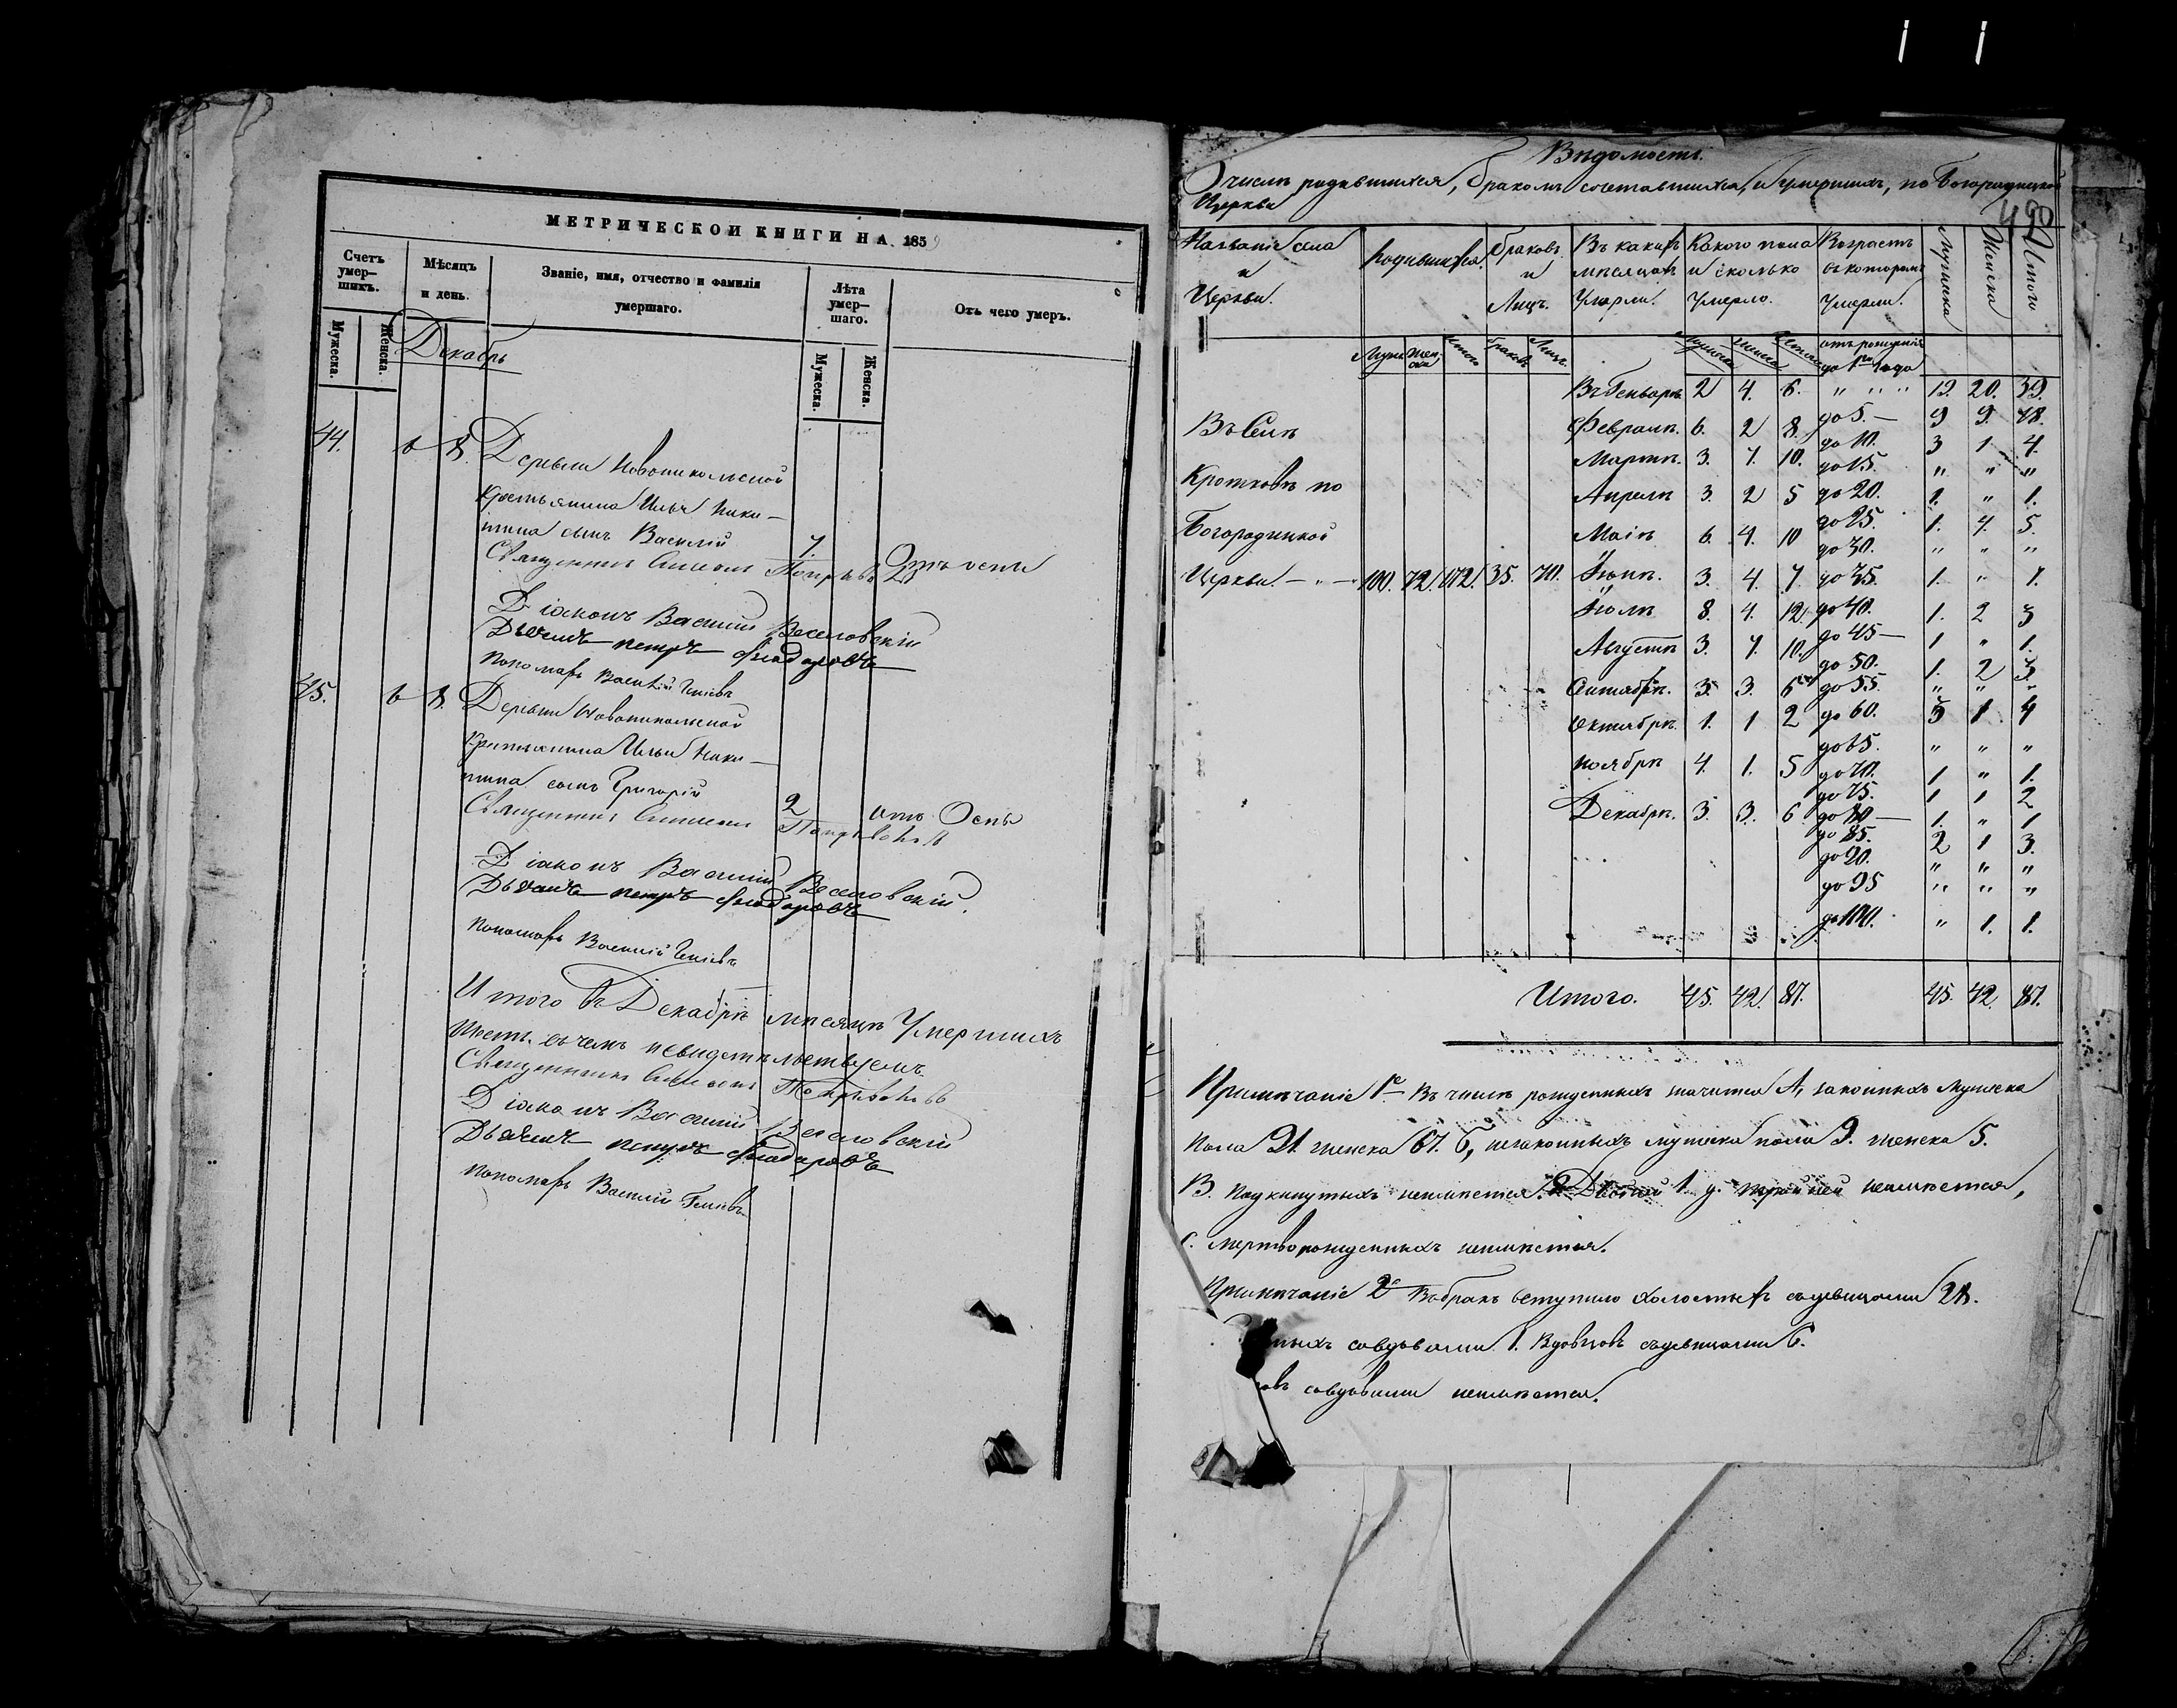 МЕТРИЧЕСКОЙ КНИГИ НА 185
Счетъ умер-шихъ.
Мѣсяцъ и день.
Званіе, имя, отчество и фамилія умершаго.
Лѣта умер-шаго.
Отъ чего умеръ.
Мужеска.
Женска.
Мужеска.
Женска.
Декабрь
44. 6 8. Деревни Новоникольской
Крестьянина Ильи Ники-
тина сынъ Василій 7. Отъ оспы
Священникъ
Діаконъ Василій Веселовскій
Дьячекъ петръ
Пономарь Василій
45. 6 8. Деревни Новоникольской
Крестьянина Ильи Ники-
тина сынъ Григорій 2 отъ Оспы
Священникъ
Діаконъ Василій Веселовскій.
Дьячекъ петръ
Пономарь Василій
Итого въ Декабрѣ мѣсяцѣ Умершихъ
шесть. въ чемъ
Священникъ
Діаконъ Василій Веселовскій
Дьячекъ петръ
Пономарь Василій
Вѣдомость.
О числѣ родившихся, бракомъ сочетавшихся, и Умершихъ, по Богородицкой
Церкви
492
Названіе села и Церкви.
Родившихся.
Браковъ и Лицъ.
Въ какихъ мѣсяцахъ Умерли.
Какого пола и сколько Умерло.
Возрастъ въ которомъ Умерли.
Мужеска
Женска
Итого
Муж. Жен-ска Итого браковъ Лицъ. отъ рожденія до 1го Года
Въ Генварѣ 2 4. 6. " " " 19. 20. 39.
Въ Селѣ Февралѣ. 6. 2 8. до 5.— 9 9. 18.
Мартѣ. 3. 7. 10. до 10. 3 1 4.
до 15. " " "
Кротковѣ по Апрелѣ 3. 2 5 до 20. 1. " 1.
Богородицкой Маіѣ 6. 4. 10 до 25. 1. 4. 5.
до 30. " " "
Церкви. — " — 100. 72. 172. 35. 70. Іюнѣ. 3. 4. 7. до 35. 1. " 1.
Іюлѣ 8. 4. 12. до 40. 1. 2 3
Августѣ 3. 7. 10. до 45— 1 " 1.
до 50. 1. 2 3.
3. 3. 6 до 55. " " "
Октябрѣ. 1. 1 2 до 60. 3 1 4
до 65. " " "
Ноябрѣ 4. 1. 5 до 70. 1 " 1.
до 75. 1 1 2
Декабрѣ. 3. 3. 6 до 80— 1. " 1
до 85. 2 1 3.
до 90. " " "
до 95 " " "
до 100. " 1. 1.
Итого. 45. 42. 87. 45. 42. 87.
Примѣчаніе 1е Въ числѣ рожденныхъ значится А, законныхъ мужеска
пола 91. женска 67. Б, незаконныхъ мужеска пола 9. женска 5.
В. Подкинутыхъ неимѣется. Двойней 1. тройней неимѣется,
мертворожденныхъ неимѣется.
Примѣчаніе 2е Въ бракъ вступило Холостыхъ съ дѣвицами 28.
совдовами 1. Вдовцовъ съдѣвицами 6.
совдовами неимѣется.